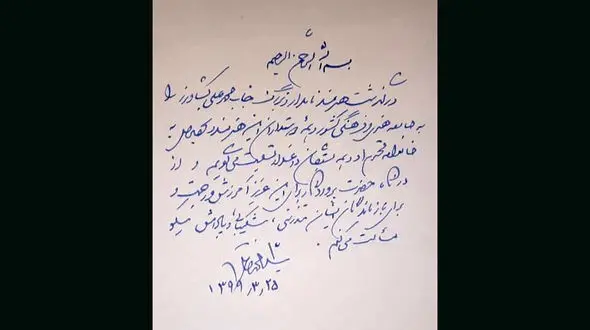 بسم الله الرحمن الرحیم
درگذشت هنرمند نامدار و بزرگ جناب محمدعلی کشاورز را
به جامعه هنری و فرهنگی کشور و همه دوستداران این هنرمند و بخصوص به
خانواده محترم او و همه مشتاقان و عزاداران تسلیت می‌گویم و از
درگاه حضرت پروردگار برای این عزیز آمرزش و رحمت و
برای بازماندگان ایشان تندرستی، شکیبائی و پاداش
مسألت می‌کنم.
۱۳۹۹,۳,۲۵